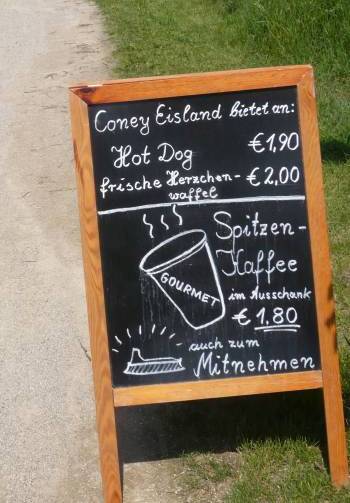 Coney Eisland bietet an:
Hot Dog €1,90
frische Herzchen- €2,00
waffel
Spitzen-
Kaffee
GOURMET
im Ausschank
€ 1,80
auch zum
Mitnehmen